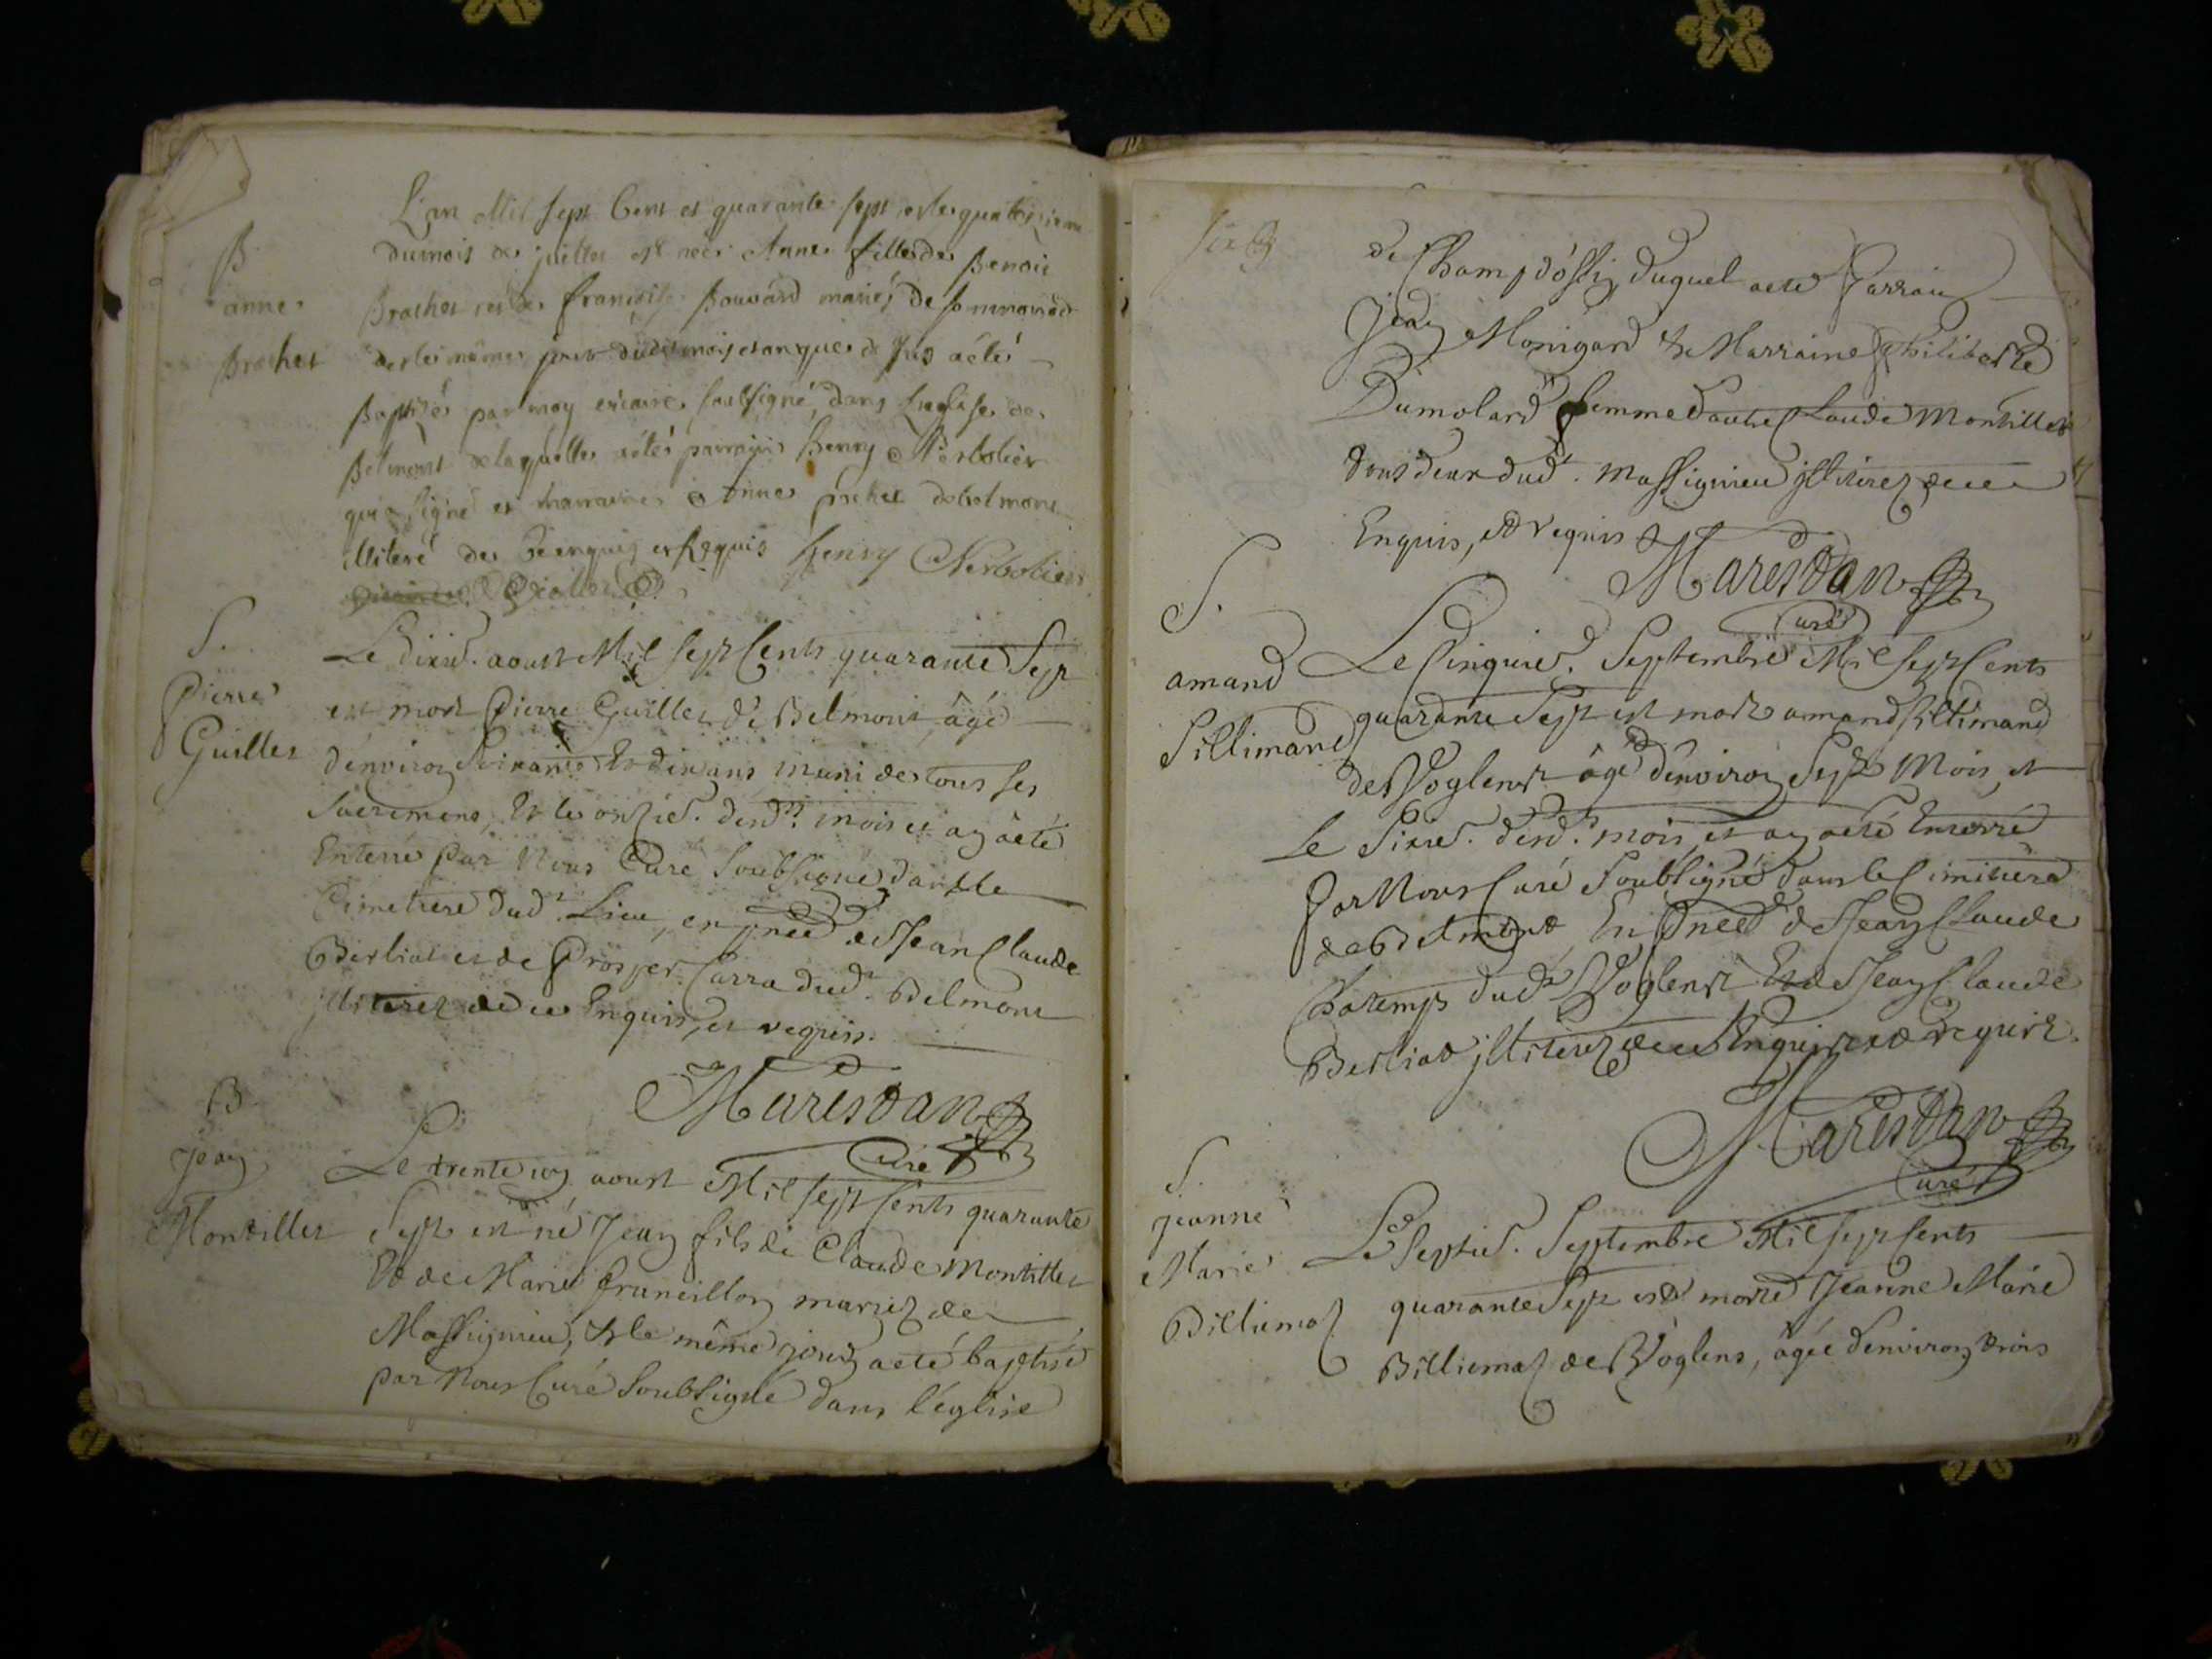 L'an Mil sept Cent et quarante sept et le quatorzieme
B
du mois de juillet est née Anne fille de Benoit
anne
Brachet et de françoise Bouvard mariés de
Brachet
et le même jour dudit mois et an que dessus a été
Baptisée par moy vicaire soubsigné dans l'eglise de
Belmont de laquelle a été parrain henry Nerbolier
qui a signé et marraine Anne brachet de belmont
illiteré de ce enquis et Requis henry Nerbolier
S.
Pierre
Guillet
Le dixie. aoust Mil sept Cents quarante Sept
est mort Pierre Guillet de Belmont, âgé
d'environ Soixante Et dix ans, muni de tous ses
Sacremens, Et le onzie. desd.ts mois et an a été
Enterré par Nous Curé Soubsigné dans le
Cimetiere dud.t Lieu, en pnce de Jean Claude
Berliat et de Prosper Carra dud.t Belmont
jlliterez de ce Enquis, et requis.
Maresdan
Curé
B
Jean
Montillet
Le trente un aoust Mil sept Cents quarante
Sept est né Jean fils de Claude Montillet
Et de Marie francillon mariez de
Massignieu, & le même jour a eté baptisé
par Nous Curé Soubsigné dans l'église
de Champdóssin duquel a eté Parrain
Jean Monigard & Marraine Philiberte
Dumolard femme d'autre Claude Montillet
tous deux dud.t Massignieu jlliterez de ce
Enquis, et requis
Maresdan
Curé
S.
amand
Sillimand
Le Cinquie. Septembre Mil sept Cents
quarante Sept est mort amand Sillimand
de Voglens âgé d'environ Sept Mois, et
Le Sixie. desd. mois et an a eté Enterré
par Nous Curé Soubsigné dans le Cimitiere
de Belmont En pnce de Jean Claude
Chatemps dud.t Voglens Et de Jean Claude
Berliat jlliterez de ce Enquis et requis.
Maresdan
Curé
S.
Jeanne
Marie
Billiemaz
Le Septie. Septembre Mil sept Cents
quarante Sept est morte Jeanne Marie
Billiemaz de Voglens, âgée d'environ trois